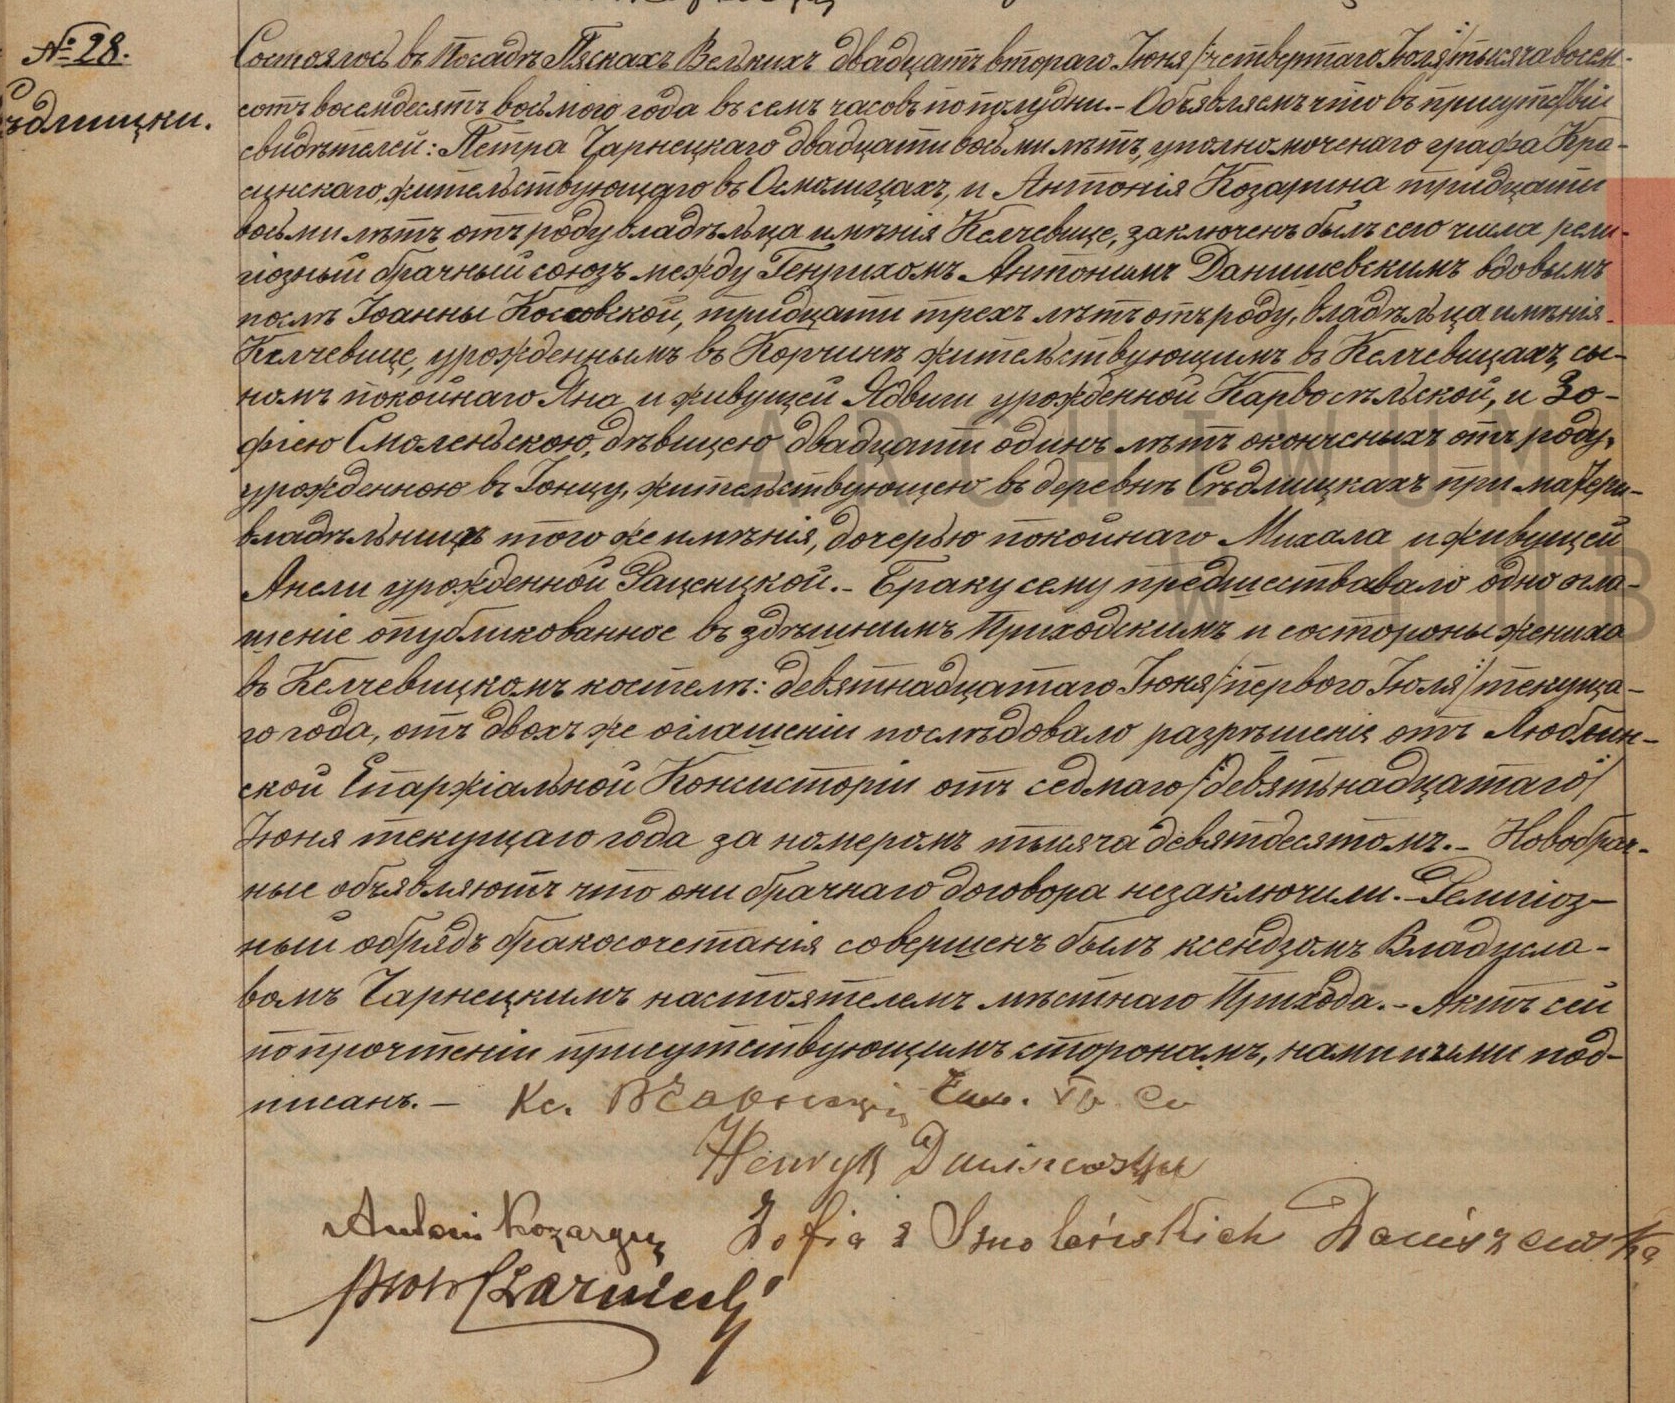 № 28.
Сѣдлицки.
Состоялось въ Посадѣ Пяскахъ Велькихъ двадцать втораго Іюня /:четвертаго Іюля:/ тысяча восем-
сотъ восемдесятъ восьмого года въ семъ часовъ по полудни. – Объявляемъ что въ присутствіи
свидѣтелей: Петра Чарнецкаго двадцати восьми лѣтъ, уполномоченаго графа Кра-
синскаго, жительствующаго въ Осмолицахъ, и Антонія Козарина тридцати
восьми лѣтъ отъ роду владѣльца имѣнія Келчевице, заключенъ былъ сего числа рели-
гіозный брачный союзъ между Генрихомъ Антонимъ Данишевскимъ вдовымъ
послѣ Іоанны Косовской, тридцати трехъ лѣтъ отъ роду, владѣльца имѣнія
Келчевице, урожденнымъ въ Корчинѣ жительствующимъ въ Келчевицахъ, сы-
номъ покойнаго Яна и живущей Ядвиги урожденной Карвосѣльской, и Зо-
фіею Смоленьскою, дѣвицею двадцати одинъ лѣтъ оконченыхъ отъ роду,
урожденною въ Гонцу, жительствующею въ деревнѣ Сѣдлицкахъ при матери
владѣльницѣ того же имѣнія, дочерью покойнаго Михала и живущей
Анели урожденной Ращницкой. – Браку сему предшествавало одно огла-
шеніе опубликованное въ здѣшнимъ Приходскимъ и состороны жениха
въ Келчевицкомъ костелѣ: девятнадцатаго Іюня /:первого Іюля:/ текуща-
го года, отъ двохъ же оглашеніи послѣдовало разрѣшеніе отъ Люблин-
ской Епархіальной Консисторіи отъ седмаго /:девятьнадцатаго:/
Іюня текущаго года за номеромъ тысяча девятдесятомъ. – Новобрач-
ные объявляютъ что они брачнаго договора незаключили. – Религіоз-
ный обрядъ бракосочетанія совершенъ былъ ксендзомъ Владисла-
вомъ Чарнецкимъ настоятелемъ мѣстнаго Прихода. – Актъ сей
по прочтеніи присутствующимъ сторонамъ, нами и ими под-
писанъ. – Кс.
Henryk Daniszewski
Antoni Kozaryn Zofia z Smoleńskich Daniszewska
Piotr Czarniecki
ARCHIWUM
W LUB